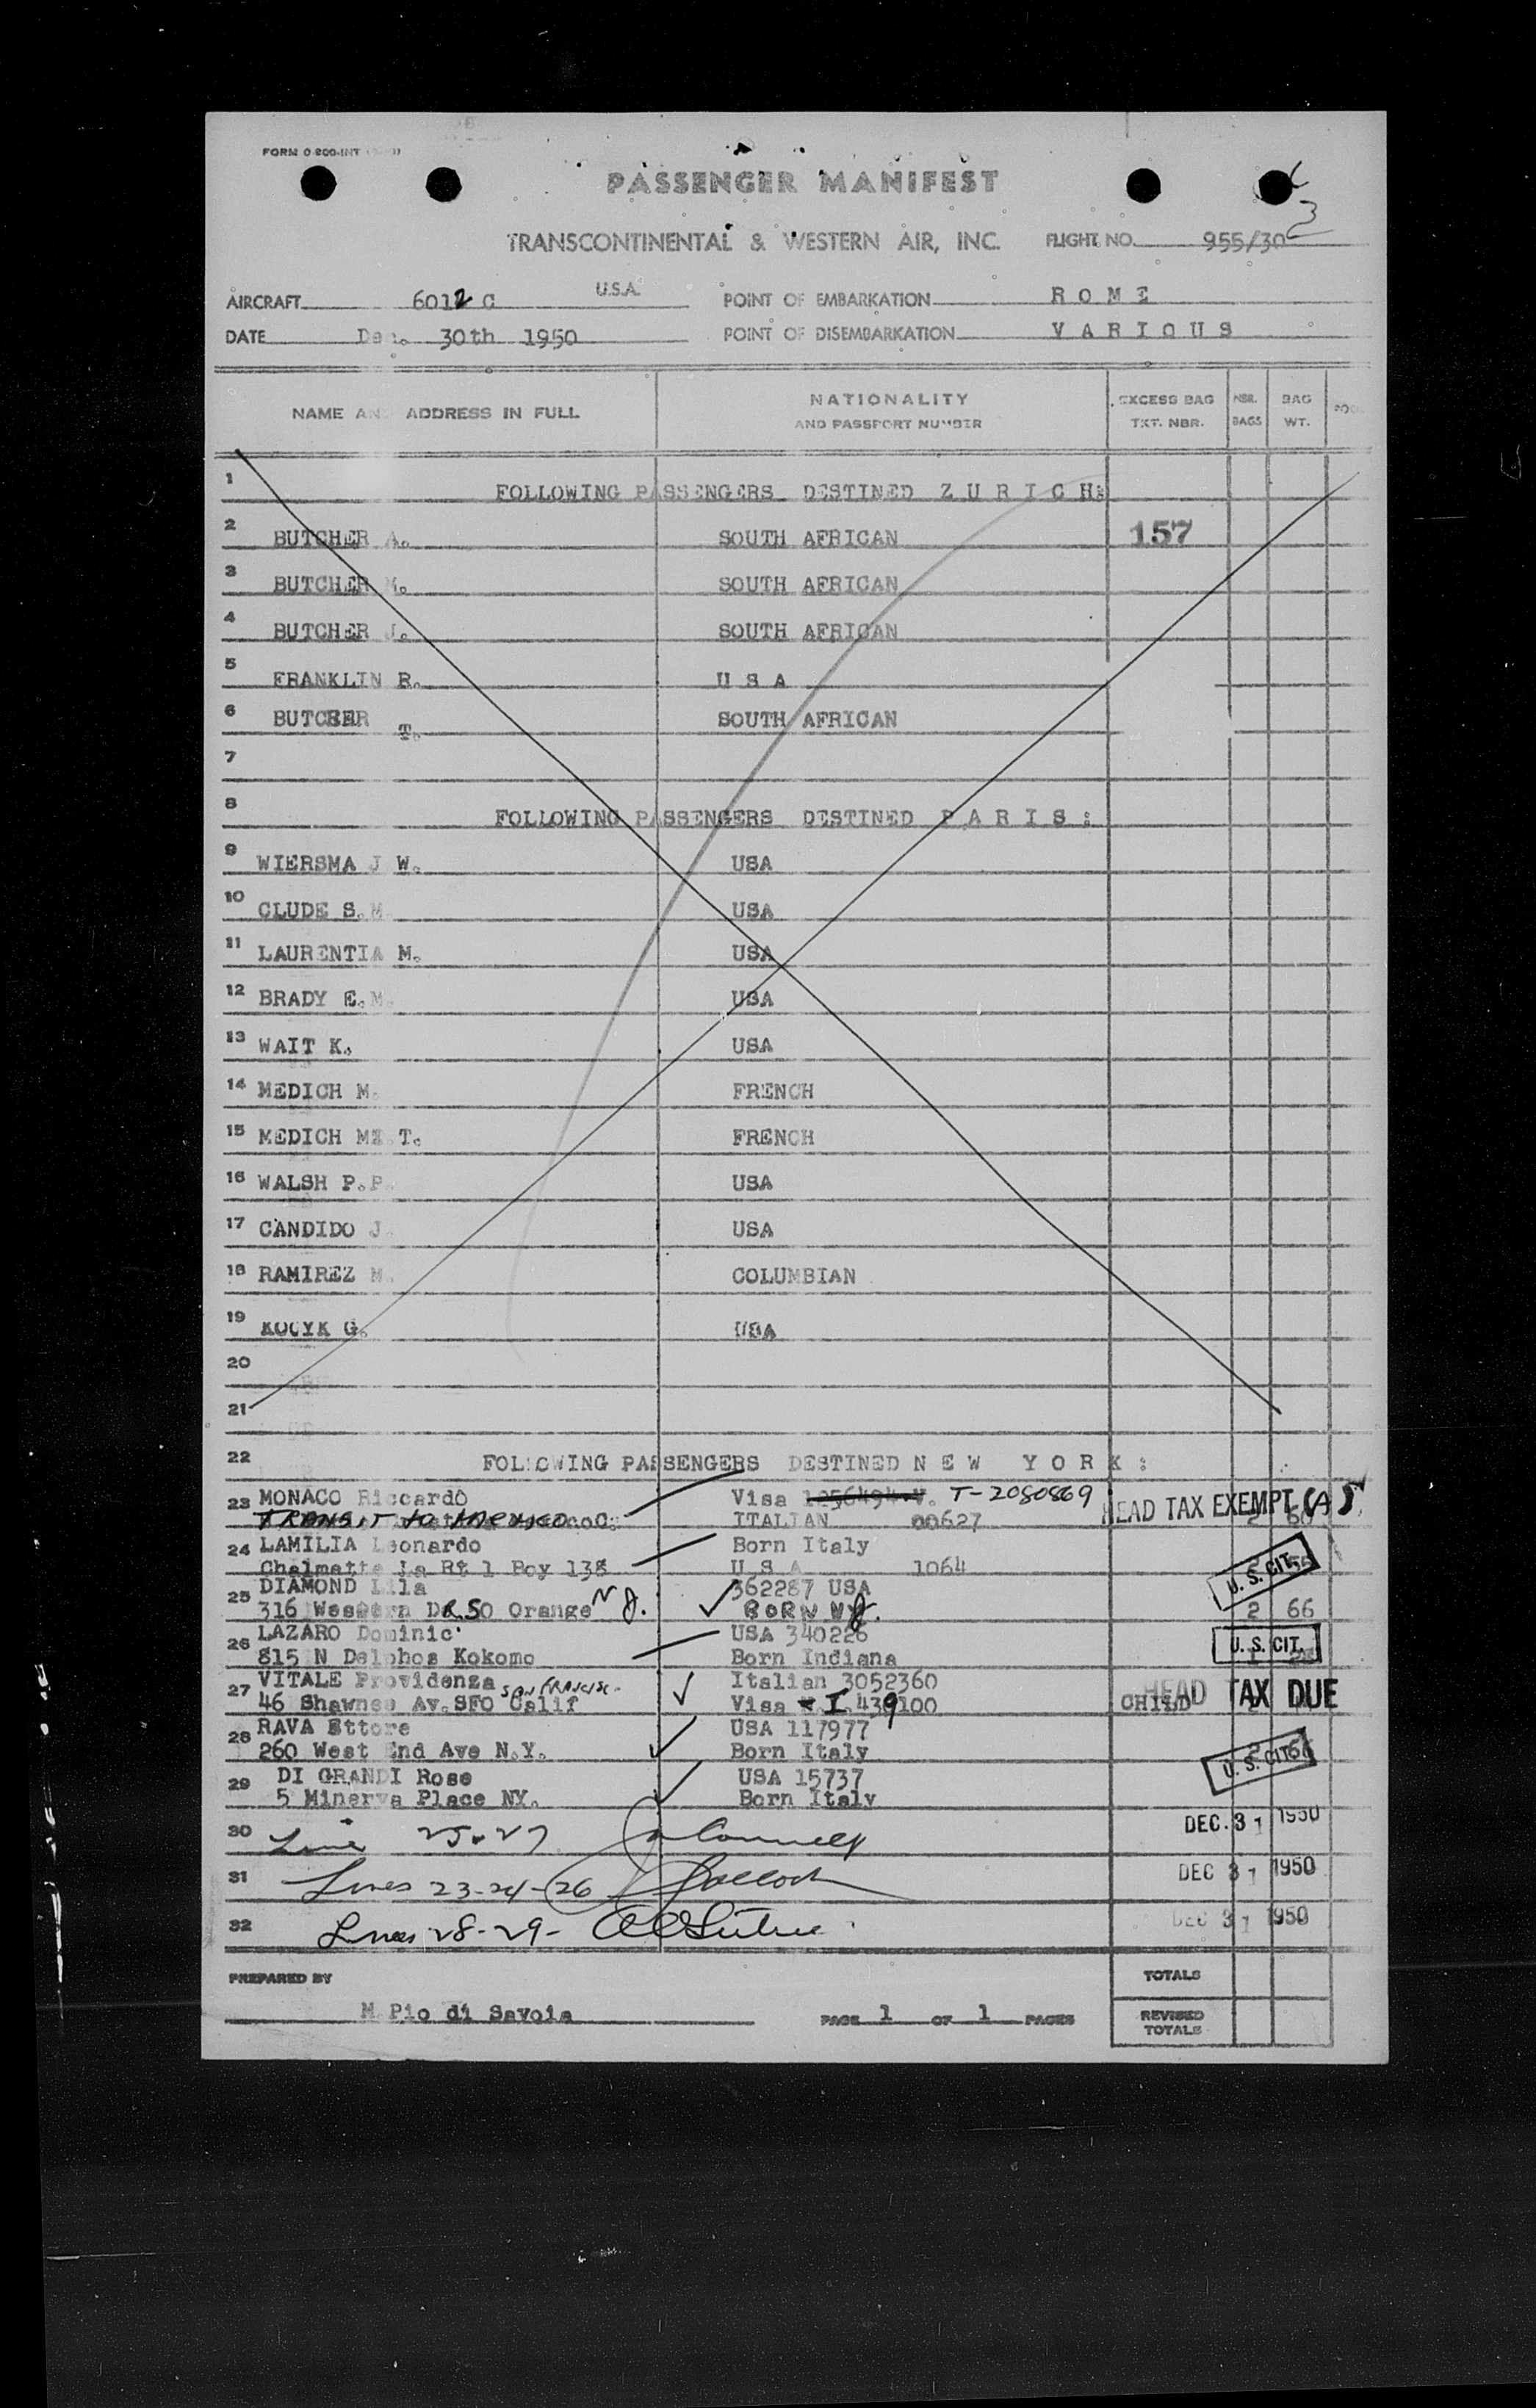 FORM O-800-INT
PASSENGER MANIFEST
3
TRANSCONTINENTAL & WESTERN AIR, INC. FLIGHT NO. 955/30
AIRCRAFT 6012 C U.S.A. POINT OF EMBARKATION R O M E
DATE Dec. 30th 1950 POINT OF DISEMBARKATION V A R I O U S
NAME AND ADDRESS IN FULL NATIONALITY AND PASSPORT NUMBER EXCESS BAG TKT. NBR. NBR. BAGS BAG WT.
1 FOLLOWING PASSENGERS DESTINED Z U R I C H:
2 BUTCHER A. SOUTH AFRICAN 157
3 BUTCHER M. SOUTH AFRICAN
4 BUTCHER J. SOUTH AFRICAN
5 FRANKLIN R. U S A
6 BUTCHER T. SOUTH AFRICAN
7
8 FOLLOWING PASSENGERS DESTINED P A R I S :
9 WIERSMA J W. USA
10 CLUDE S.M USA
11 LAURENTIA M. USA
12 BRADY E.M. USA
13 WAIT K. USA
14 MEDICH M. FRENCH
15 MEDICH T. FRENCH
16 WALSH P.P. USA
17 CANDIDO J. USA
18 RAMIREZ M. COLUMBIAN
19 KOCYK G. USA
20
21
22 FOLLOWING PASSENGERS DESTINED N E W Y O R K :
23 MONACO Riccardo Visa T-2080869 HEAD TAX EXEMPT
TRANSIT to MEXICO ITALIAN 00627 2
24 LAMILIA Leonardo Born Italy
Chalmette La Rt 1 Boy 138 U S A 1064 U. S. CIT.
25 DIAMOND Lila 362287 USA
316 Western Dr. SO Orange N J. BORN NJ. 2 66
26 LAZARO Dominic USA 340226
815 N Delphos Kokomo Born Indiana U. S. CIT.
27 VITALE Providenza SAN FRANCISC- Italian 3052360
46 Shawnee Av. SFO Calif Visa I 439100 CHILD HEAD TAX DUE
28 RAVA Ettore USA 117977
260 West End Ave N.Y. Born Italy U. S. CIT.
29 DI GRANDI Rose USA 15737
5 Minerva Place NY. Born Italy
30 Line 25-27 DEC. 31 1950
31 Lines 23-24-26 DEC 31 1950
32 Lines 28-29- DEC 31 1950
PREPARED BY TOTALS
M Pio di Savoia PAGE 1 OF 1 PAGES REVISED TOTALS